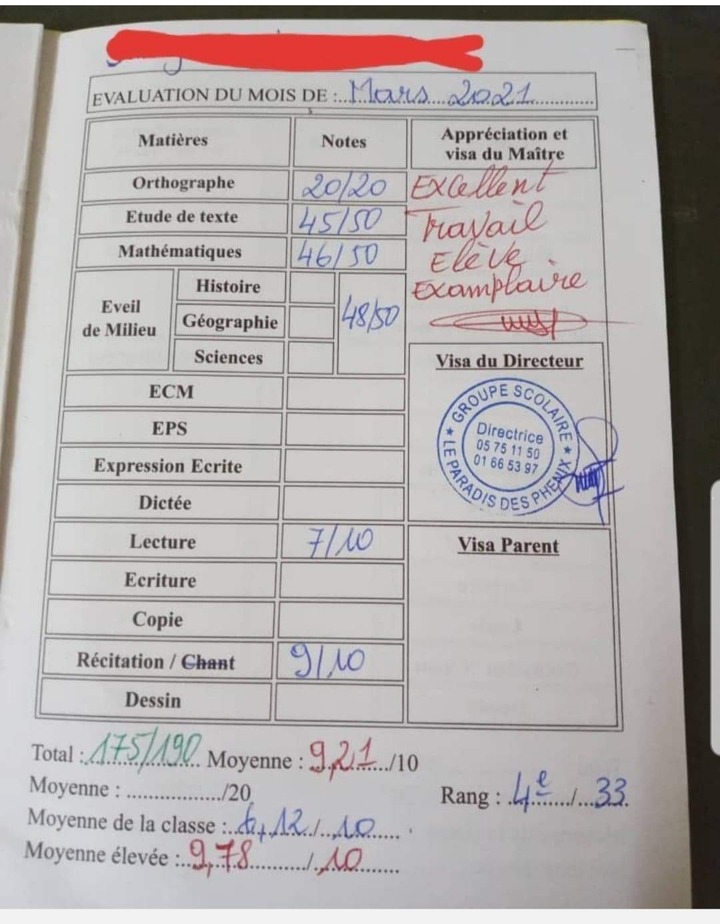 EVALUATION DU MOIS DE : Mars 2021
Matières Notes Appréciation et visa du Maître
Orthographe 20/20 Excellent
Etude de texte 45/50 Travail
Mathématiques 46/50 Elève
Eveil de Milieu Histoire Géographie Sciences 48/50 Examplaire
Visa du Directeur
GROUPE SCOLAIRE
Directrice
05 75 11 50
01 66 53 97
LE PARADIS DES PHENIX
ECM
EPS
Expression Ecrite
Dictée
Lecture 7/10 Visa Parent
Ecriture
Copie
Récitation / Chant 9/10
Dessin
Total : 175/190 Moyenne : 9,21 /10
Moyenne : ............../20 Rang : 4e / 33
Moyenne de la classe : 6,12 / 10
Moyenne élevée : 9,78 / 10